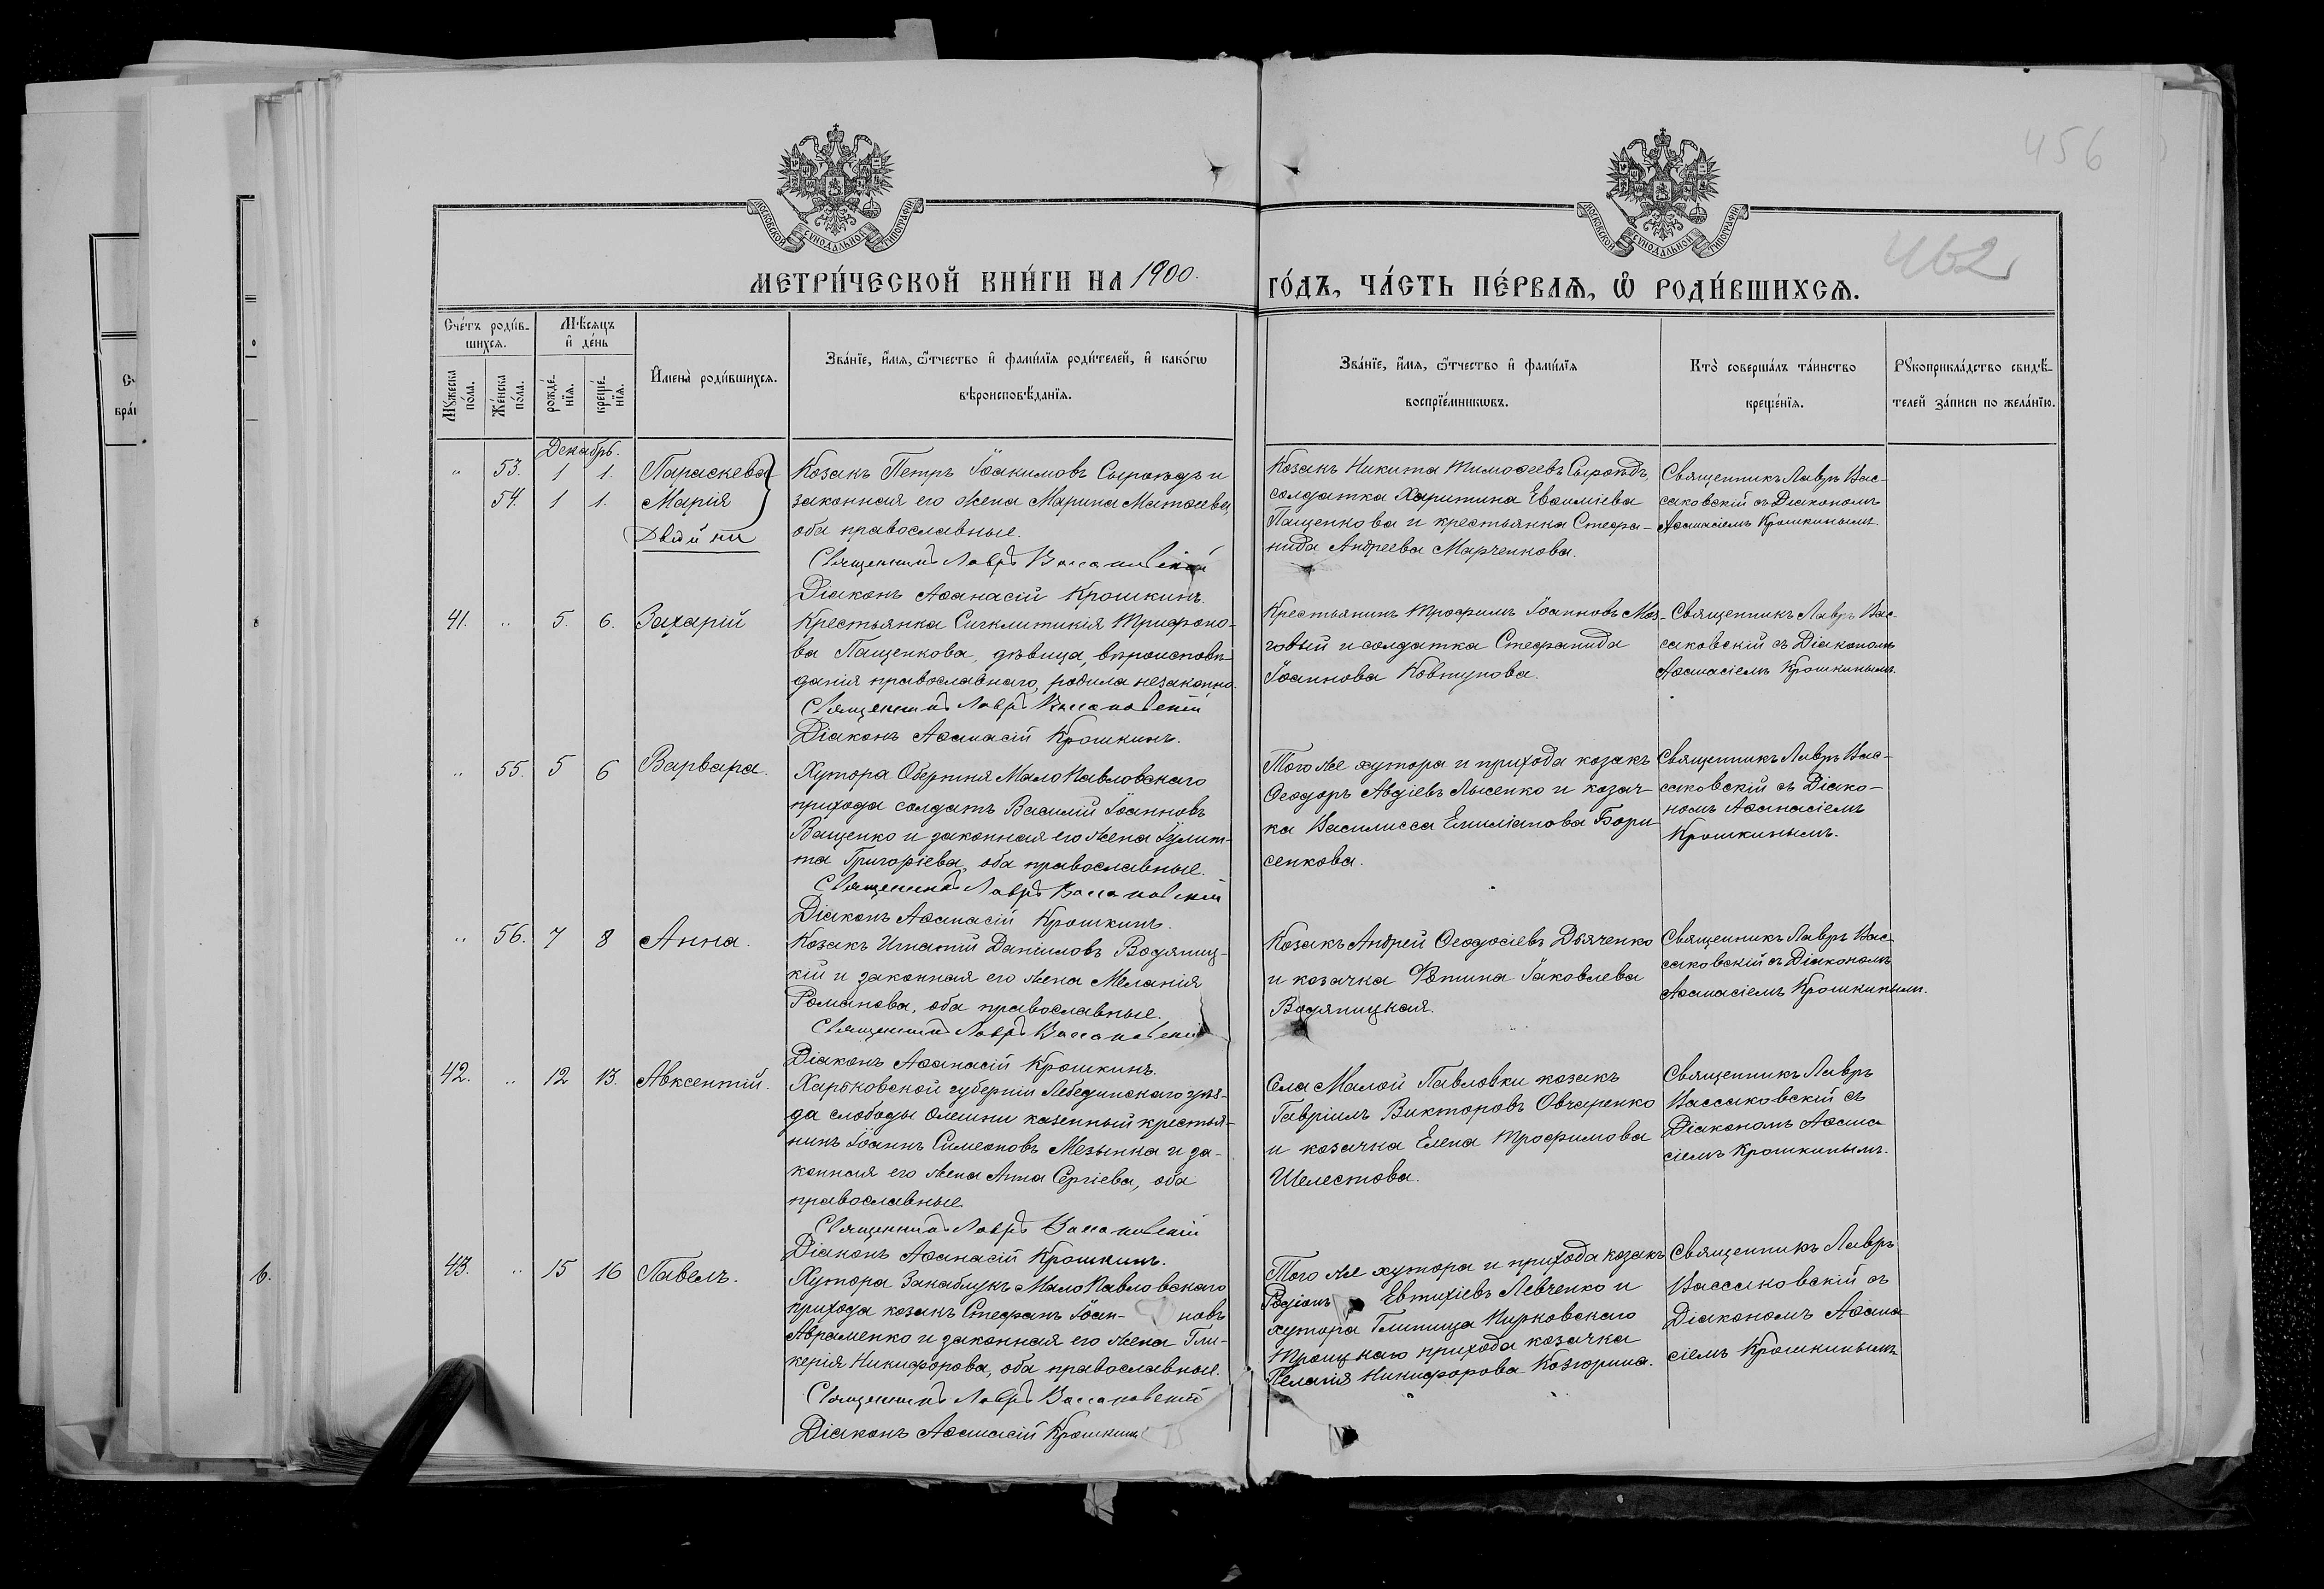 456
462
МОСКОВСКОЙ СѴНОДАЛЬНОЙ ТИПОГРАФІИ
МОСКОВСКОЙ СѴНОДАЛЬНОЙ ТИПОГРАФІИ
МЕТРИ́ЧЕСКОЙ КНИ́ГИ НА 1900. ГО́ДЪ, ЧА́СТЬ ПЕ́РВАѦ, Ѽ РОДИ́ВШИХСѦ.
Сче́тъ роди́в-
шихсѧ.
Мꙋжеска по́ла.
Же́нска по́ла.
Мѣ́сѧцъ и де́нь
рожде́-нїѧ.
креще́-нїѧ.
Имена̀ роди́вшихсѧ.
Зва́нїе, и́мѧ, ѻ҆́тчество и фами́лїѧ роди́телей, и како́гѡ
вѣроисповѣ́данїѧ.
Зва́нїе, и́мѧ, ѻ҆́тчество и фами́лїѧ
воспрїе́мникѡвъ.
Кто̀ соверша́лъ та́инство
креще́нїѧ.
Рꙋкоприкла́дство свидѣ́-
телей за́писи по жела́нїю.
Декабрь.
" 53. 1 1. Параскева
54. 1 1. Марія
Двойни
Козакъ Петръ Іоакимовъ Сыроѣдъ и
законная его жена Марина Матѳеева,
оба православные.
Священникъ Лавръ Вассаковскій
Діаконъ Аѳанасій Крошкинъ.
Козакъ Никита Тимоѳеевъ Сыроѣдъ,
солдатка Харитина Евѳиміева
Пащенкова и крестьянка Стефа-
нида Андреева Марченкова.
Священникъ Лавръ Вас-
саковскій съ Діакономъ
Аѳанасіемъ Крошкинымъ.
41. " 5. 6. Захарій
Крестьянка Сигклитикія Трифоно-
ва Пащенкова, дѣвица, вѣроисповѣ-
данія православнаго, родила незаконно.
Священникъ Лавръ Вассаковскій
Діаконъ Аѳанасій Крошкинъ.
Крестьянинъ Трофимъ Іоанновъ Моз-
говый и солдатка Стефанида
Іоаннова Ковтунова.
Священникъ Лавръ Вас-
саковскій съ Діакономъ
Аѳанасіемъ Крошкинымъ.
" 55. 5 6 Варвара.
Хутора Обертня Малопавловскаго
прихода солдатъ Василій Іоанновъ
Ващенко и законная его жена Іулит-
та Григоріева, оба православные.
Священникъ Лавръ Вассаковскій
Діаконъ Аѳанасій Крошкинъ.
Того же хутора и прихода козакъ
Ѳеодоръ Авдіевъ Лысенко и козач-
ка Василисса Емиліанова Бори-
сенкова.
Священникъ Лавръ Вас-
саковскій съ Діако-
номъ Аѳанасіемъ
Крошкинымъ.
" 56. 7 8 Анна.
Козакъ Игнатій Даніиловъ Водяниц-
кій и законная его жена Меланія
Романова, оба православные.
Священникъ Лавръ Вассаковскій
Діаконъ Аѳанасій Крошкинъ.
Козакъ Андрей Ѳеодосіевъ Дьяченко
и козачка Фотина Іаковлева
Водяницкая.
Священникъ Лавръ Вас-
саковскій съ Діакономъ
Аѳанасіемъ Крошкинымъ.
42. " 12 13. Авксентій.
Харьковской губерніи Лебединскаго уѣз-
да слободы Олешни казенный крестья-
нинъ Іоаннъ Симеоновъ Мезынка и за-
конная его жена Анна Сергіева, оба
православные.
Священникъ Лавръ Вассаковскій
Діаконъ Аѳанасій Крошкинъ.
Села Малой Павловки козакъ
Гавріилъ Викторовъ Овчаренко
и козачка Елена Трофимова
Шелестова.
Священникъ Лавръ
Вассаковскій съ
Діакономъ Аѳана-
сіемъ Крошкинымъ.
43. " 15 16 Павелъ.
Хутора Закаблукъ Малопавловскаго
прихода козакъ Стефанъ Іоан- новъ
Авраменко и законная его жена Гли-
керія Никифорова, оба православные.
Священникъ Лавръ Вассаковскій
Діаконъ Аѳанасій Крошкинъ
Того же хутора и прихода козакъ
Родіонъ Евтихіевъ Левченко и
хутора Глитица Кирковскаго
Троицкаго прихода козачка
Пелагія Никифорова Козюрина.
Священникъ Лавръ
Вассаковскій съ
Діакономъ Аѳана-
сіемъ Крошкинымъ